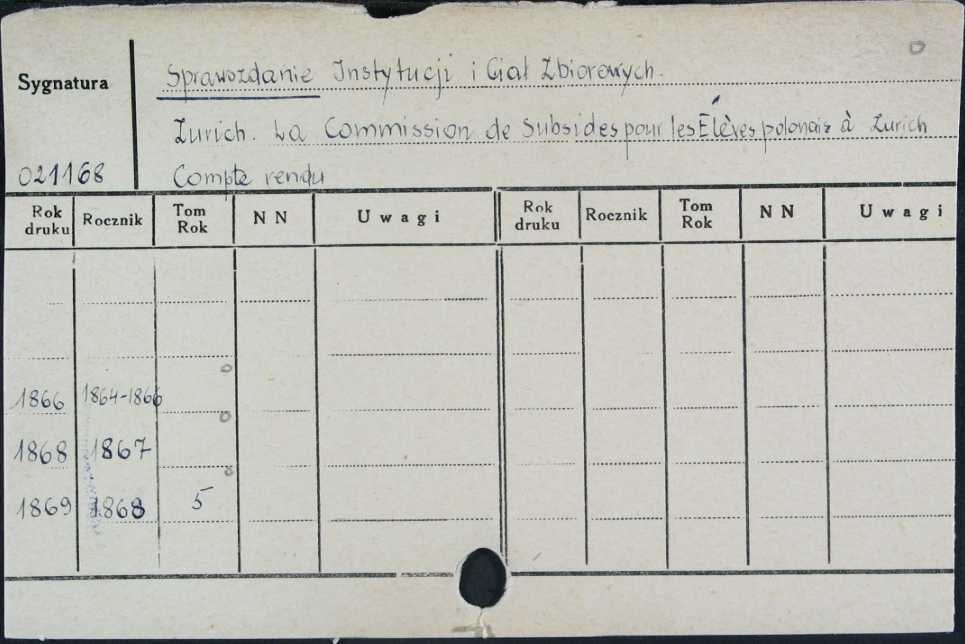 Sygnatura Sprawozdanie Instytucji i Ciał Zbiorowych.
Zurich. La Commission de Subsides pour les Élèves polonais à Zurich
021168 Compte rendu
Rok druku Rocznik Tom Rok N N Uwagi Rok druku Rocznik Tom Rok N N Uwagi
1866 1864-1866
1868 1867
1869 1868 5